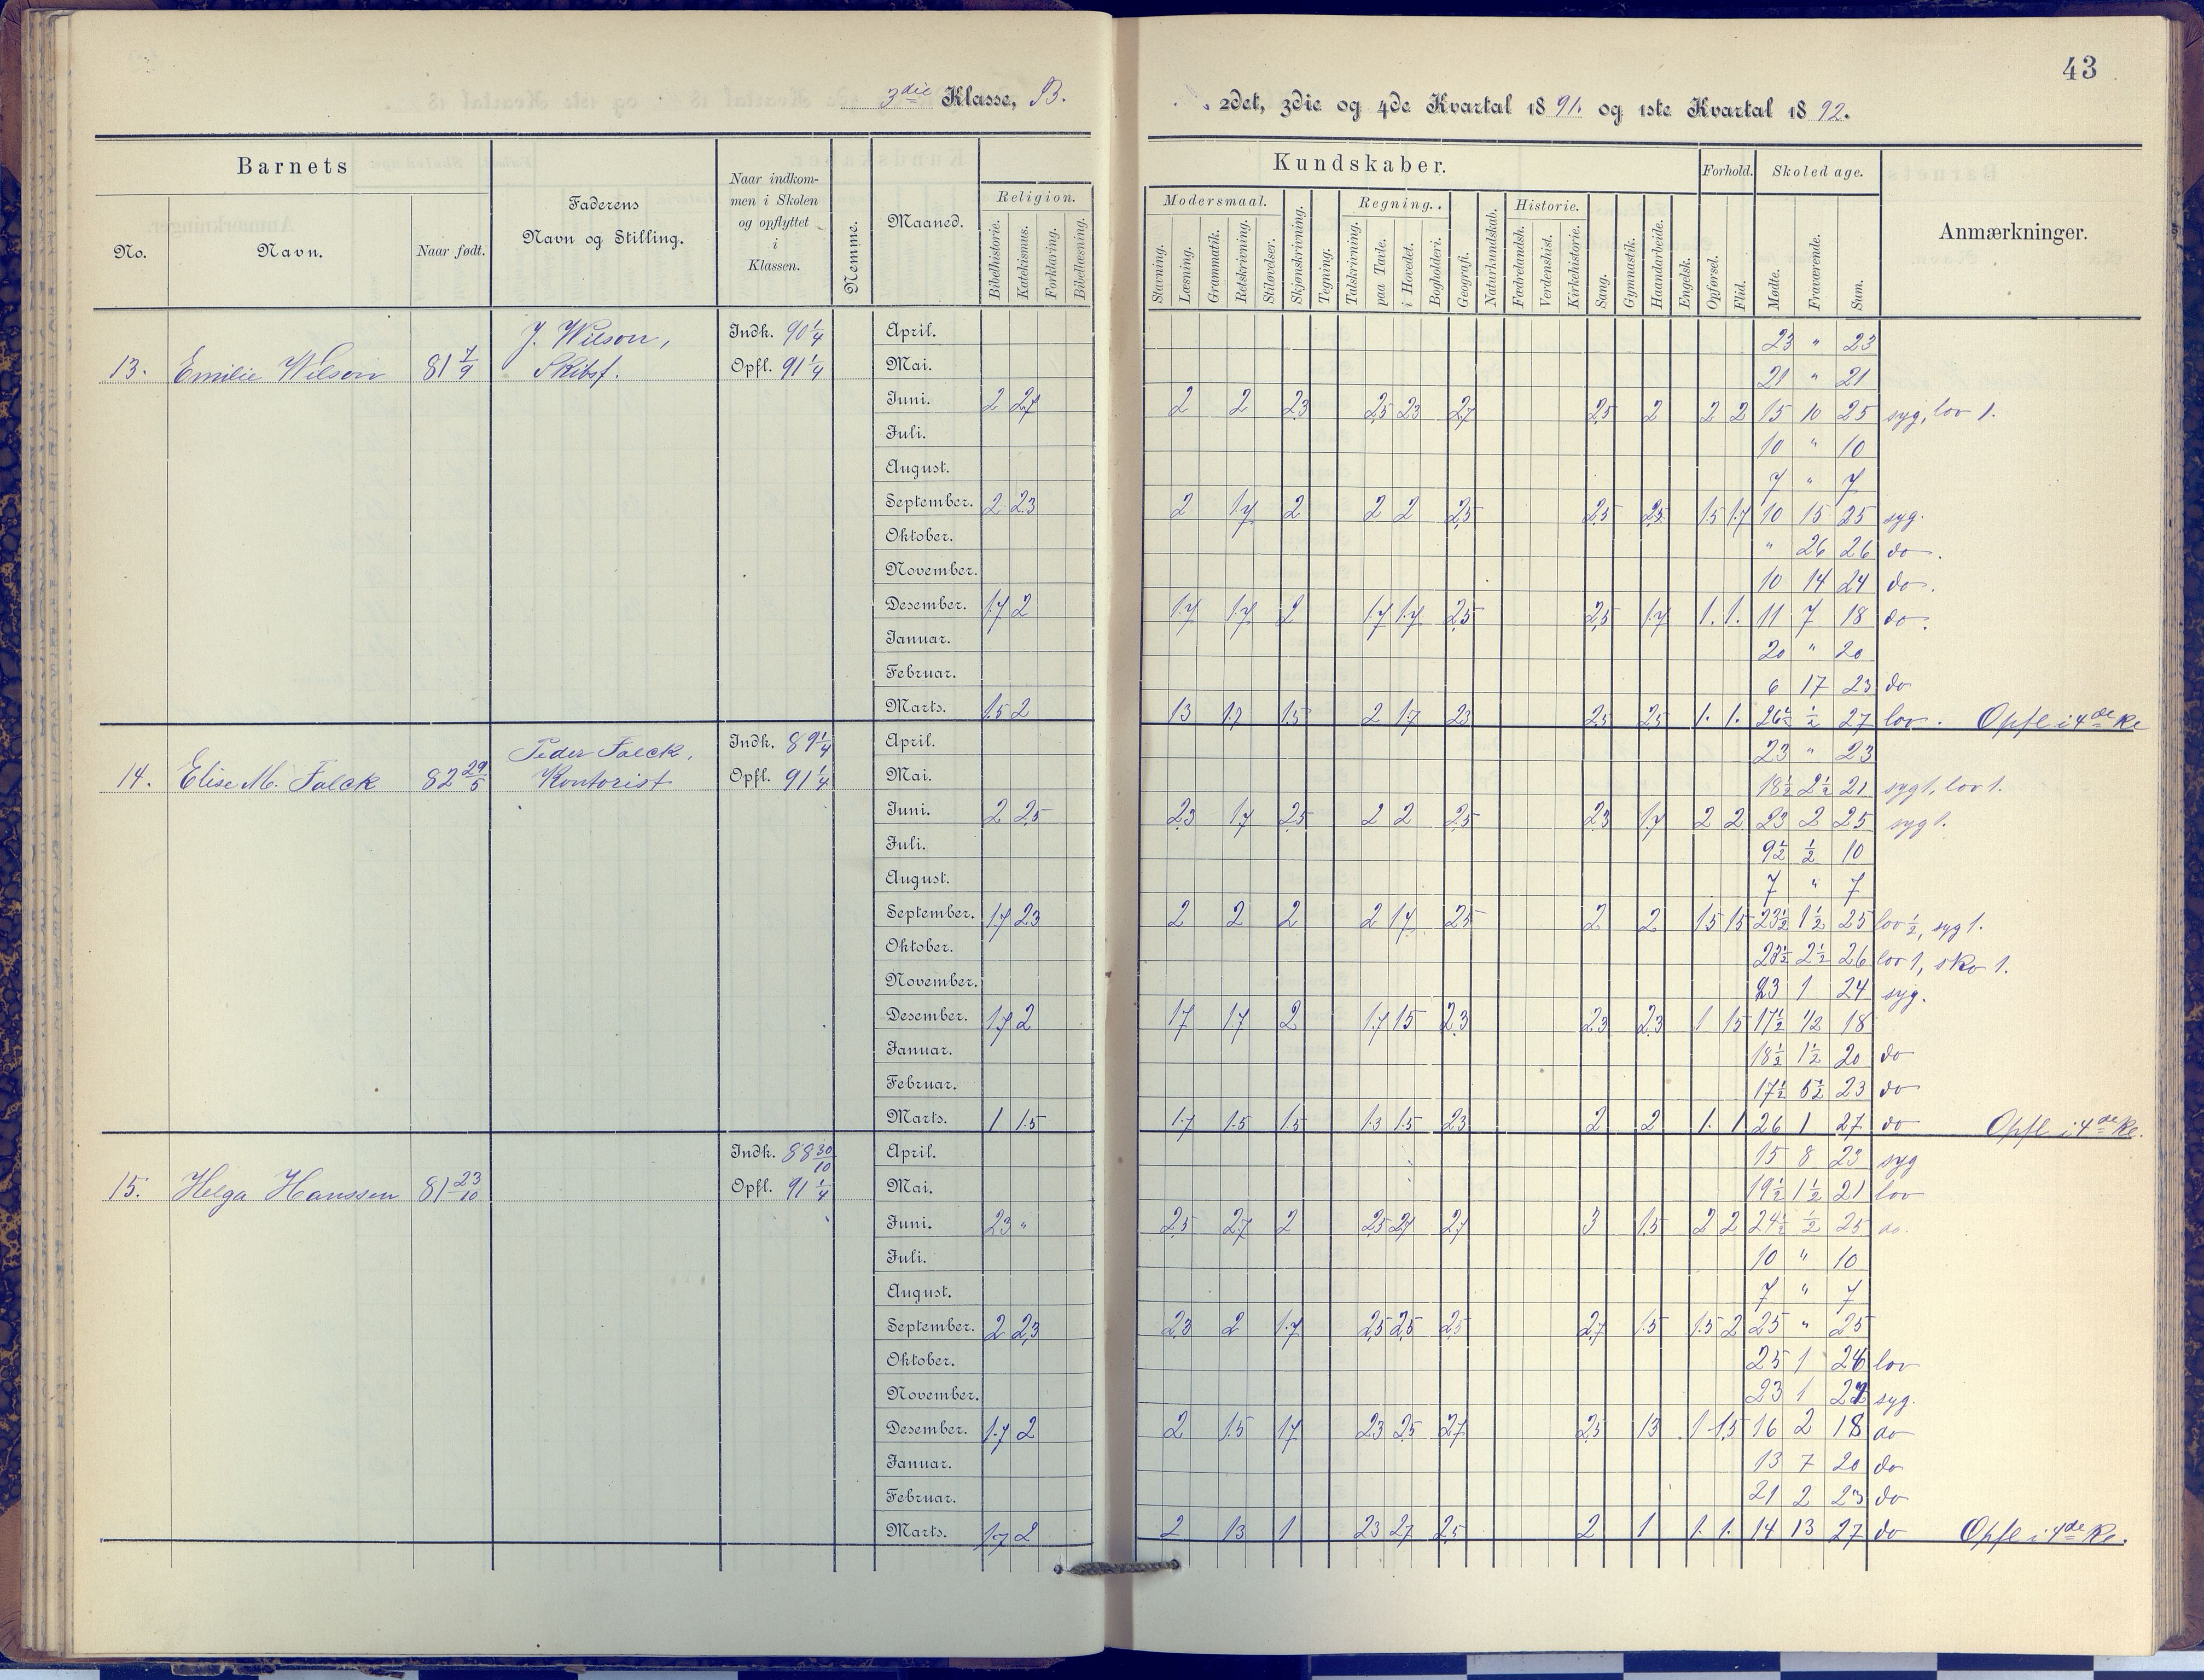 43
3die Klasse, B. 2det, 3die og 4de Kvartal 1891. og 1ste Kvartal 1892.
Barnets
No. Navn. Naar født.
Faderens
Navn og Stilling.
Naar indkom-
men i Skolen
og opflyttet
i
Klassen.
Nemme.
Maaned.
Kundskaber.
Religion.
Bibelhistorie. Katekismus. Forklaring. Bibellæsning.
Modersmaal.
Stavning. Læsning. Grammatik. Retskrivning. Stiløvelser.
Skjønskrivning. Tegning.
Regning.
Talskrivning. paa Tavle. i Hovedet. Bogholderi.
Geografi. Naturkundskab.
Historie.
Fædrelandsh. Verdenshist. Kirkehistorie.
Sang. Gymnastik. Haandarbeide. Engelsk.
Forhold.
Opførsel. Flid.
Skoledage.
Mødte. Fraværende. Sum.
Anmærkninger.
13. Emilie Wilson 81 7/9 J. Wilson, Skibsf. Indk. 90 1/4 Opfl. 91 1/4
April. 23 " 23
Mai. 21 " 21
Juni. 2 2,7 2 2 2,3 2,5 2,3 2,7 2,5 2 2 2 15 10 25 syg, lov 1.
Juli. 10 " 10
August. 7 " 7
September. 2 2,3 2 1,7 2 2 2 2,5 2,5 2,5 1,5 1,7 10 15 25 syg.
Oktober. " 26 26 do.
November. 10 14 24 do.
Desember. 1,7 2 1,7 1,7 2 1,7 1,7 2,5 2,5 1,7 1. 1. 11 7 18 do.
Januar. 20 " 20
Februar. 6 17 23 do
Marts. 1,5 2 1,3 1,7 1,5 2 1,7 2,3 2,5 2,5 1. 1. 26 1/2 1/2 27 lov. Opfl i 4de Kl
14. Elise M. Falck 82 29/5 Peder Falck, Kontorist Indk. 89 1/4 Opfl. 91 1/4
April. 23 " 23
Mai. 18 1/2 2 1/2 21 syg 1, lov 1.
Juni. 2 2,5 2,3 1,7 2,5 2 2 2,5 2,3 1,7 2 2 23 2 25 syg 1.
Juli. 9 1/2 1/2 10
August. 7 " 7
September. 1,7 2,3 2 2 2 2 1,7 2,5 2 2 1,5 1,5 23 1/2 1 1/2 25 lov 1/2, syg 1.
Oktober. 23 1/2 2 1/2 26 lov 1, sko 1.
November. 23 1 24 syg.
Desember. 1,7 2 1,7 1,7 2 1,7 1,5 2,3 2,3 2,3 1 1,5 17 1/2 1/2 18
Januar. 18 1/2 1 1/2 20 do
Februar. 17 1/2 5 1/2 23 do
Marts. 1 1,5 1,7 1,5 1,5 1,3 1,5 2,3 2 2 1. 1 26 1 27 do Opfl i 4de Kl.
15. Helga Hanssen 81 23/10 Indk. 88 30/10 Opfl. 91 1/4
April. 15 8 23 syg
Mai. 19 1/2 1 1/2 21 lov
Juni. 2,3 " 2,5 2,7 2 2,5 2,7 2,7 3 1,5 2 2 24 1/2 1/2 25 do.
Juli. 10 " 10
August. 7 " 7
September. 2 2,3 2,3 2 1,7 2,5 2,5 2,5 2,7 1,5 1,5 2 25 " 25
Oktober. 25 1 26 lov
November. 23 1 24 syg.
Desember. 1,7 2 2 1,5 1,7 2,3 2,5 2,7 2,5 1,3 1 1,5 16 2 18 do
Januar. 13 7 20 do
Februar. 21 2 23 do
Marts. 1,7 2 2 1,3 1 2,3 2,7 2,5 2 1 1. 1. 14 13 27 do Opfl i 4de Kl.